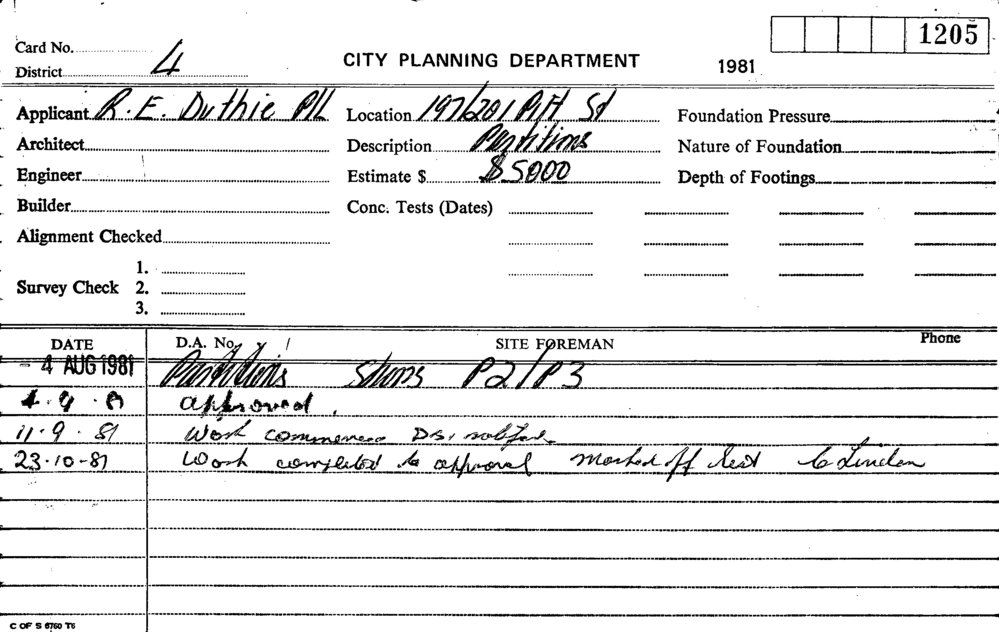 1205
Card No.
District 4
CITY PLANNING DEPARTMENT
1981
Applicant R. E. Duthie P/L
Location 197/201 Pitt St
Foundation Pressure
Architect
Description Partitions
Nature of Foundation
Engineer
Estimate $ $5000
Depth of Footings
Builder
Conc. Tests (Dates)
Alignment Checked
Survey Check
1.
2.
3.
DATE D.A. No. SITE FOREMAN Phone
- 4 AUG 1981 Partitions Shops P2/P3
approved.
11.9.81 Work commenced
23.10.81 Work completed to approval marked off
C OF S 6760 T6